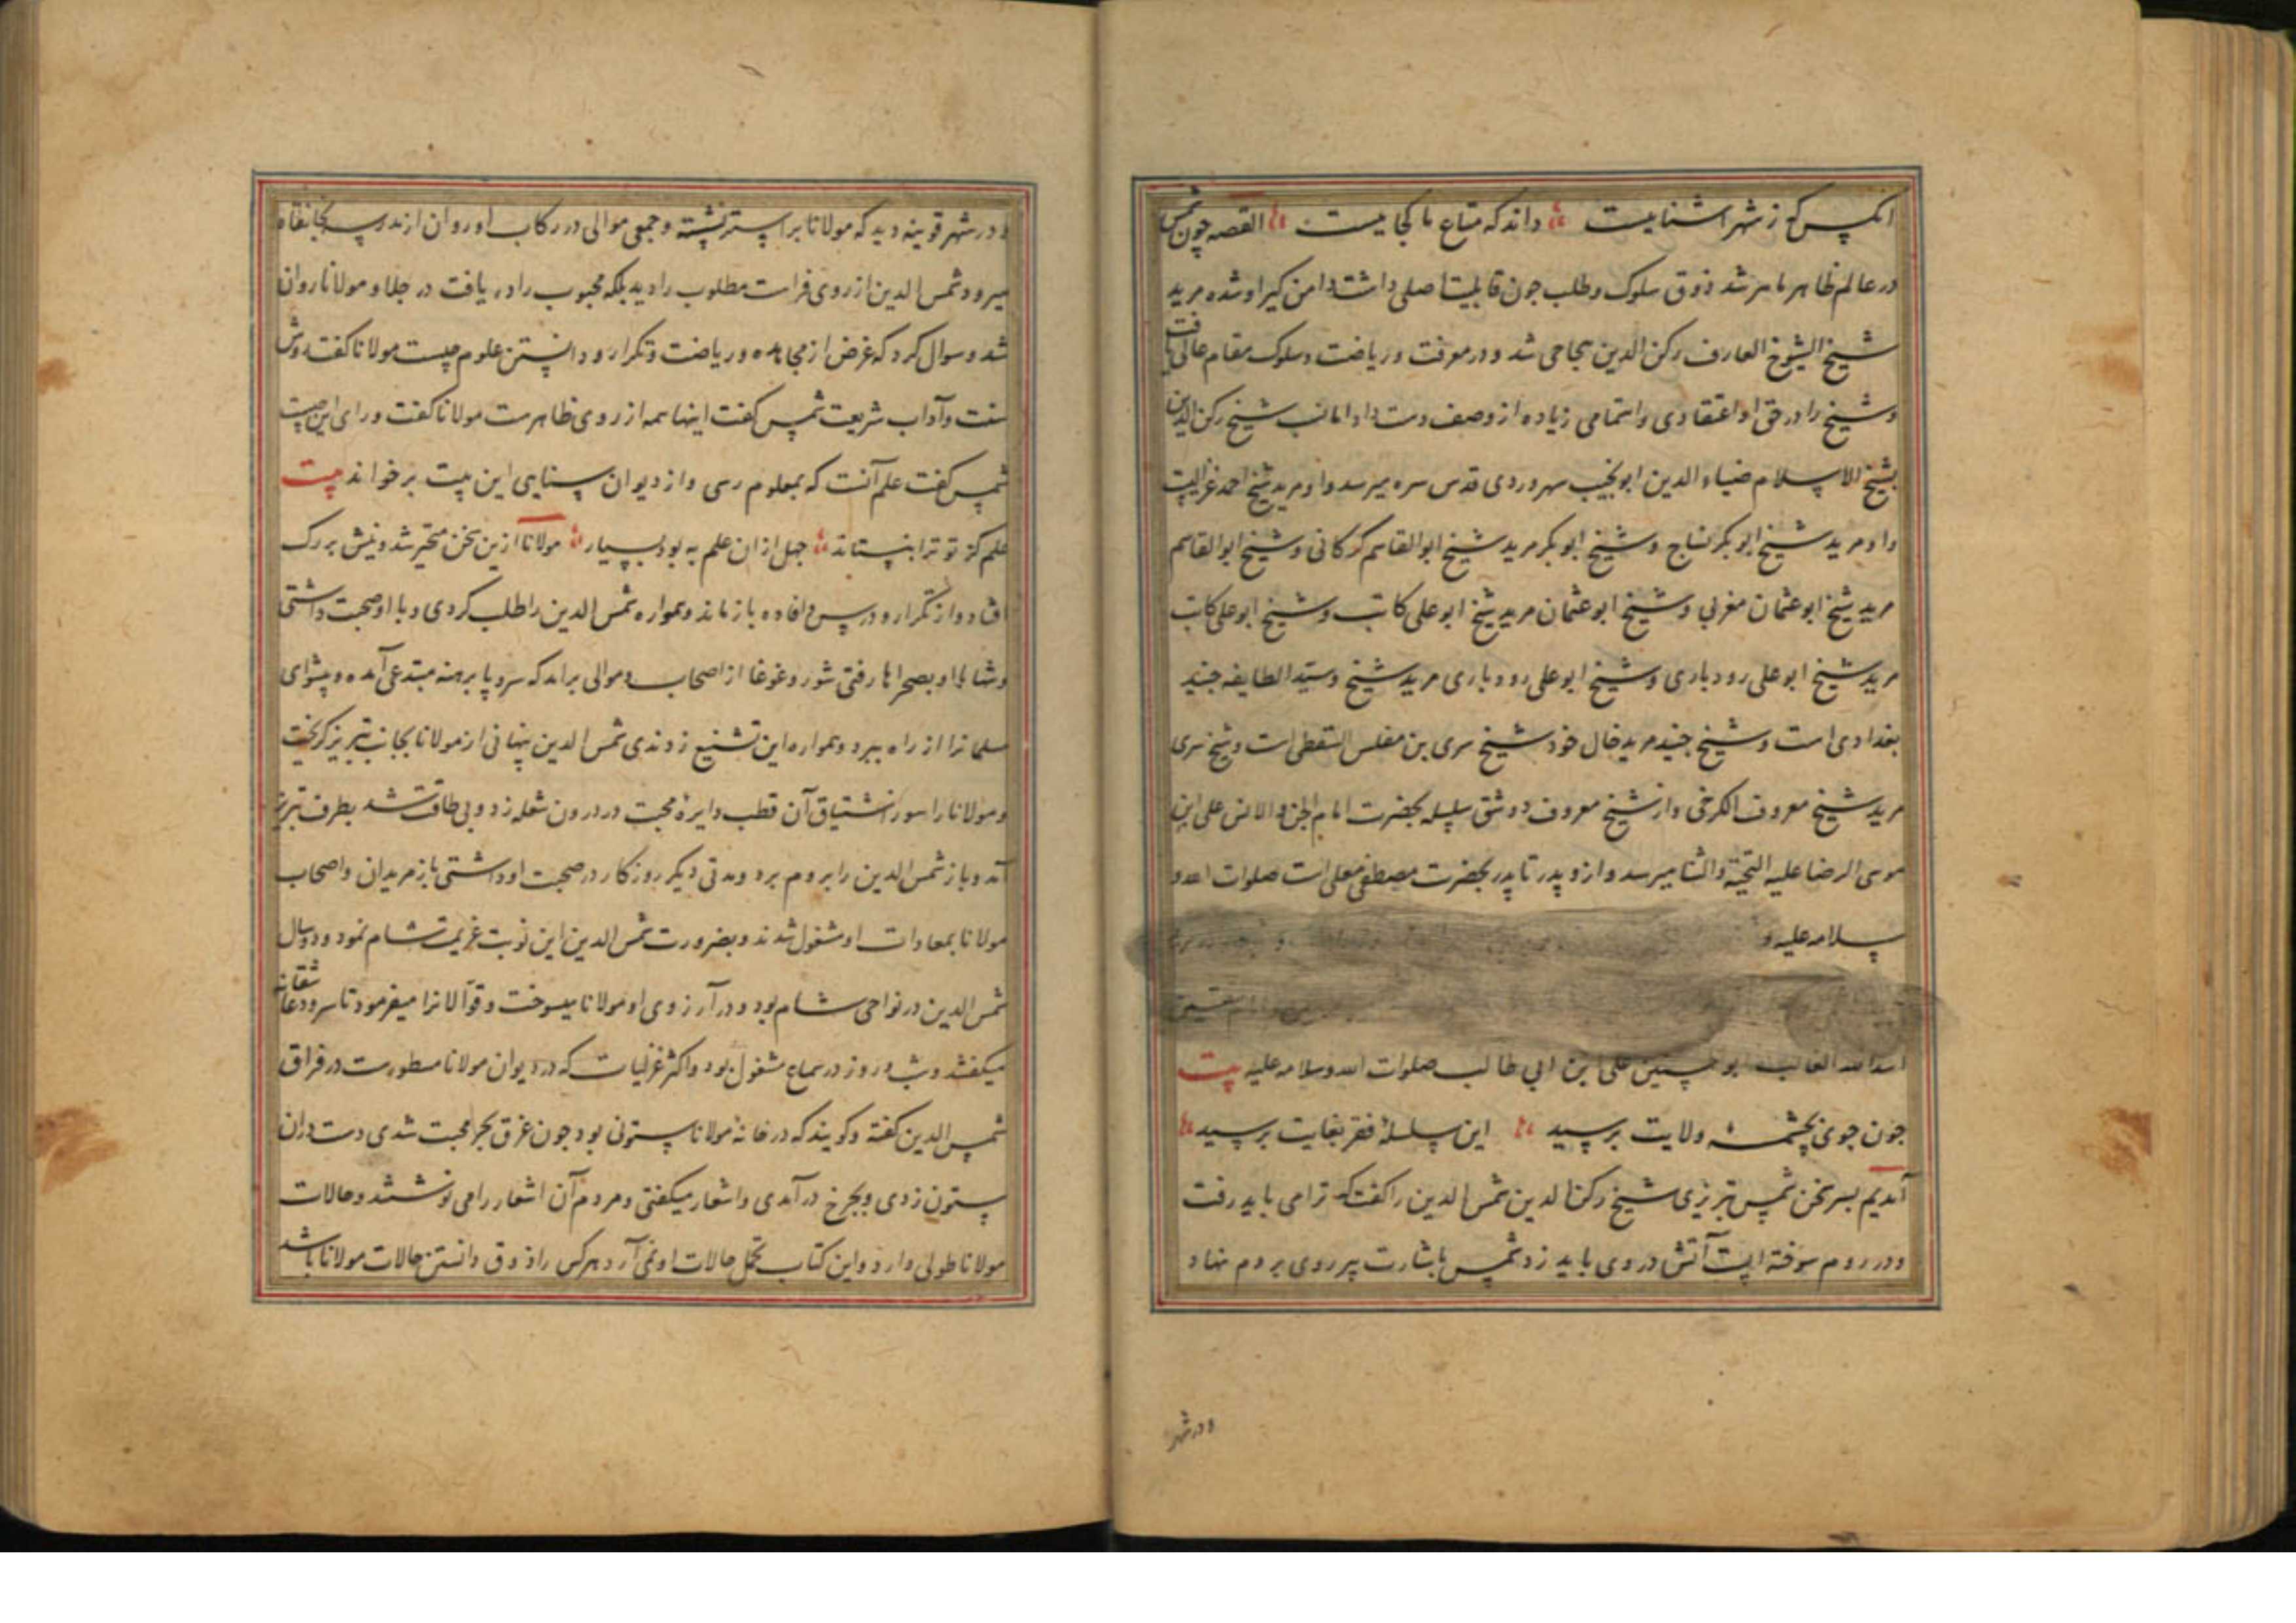 انکس که ز شهر اشناییست داند که متاع ما کجاییست القصه چون شمس
در عالم ظاهر ماهر شد ذوق سلوک و طلب چون قابلیت اصلی داشت دامن کیر او شده مرید
شیخ الشیوخ العارف رکن الدین سجاحی شد و در معرفت و ریاضت و سلوک مقام عالی یافت
و شیخ را در حق او اعتقادی و اهتمامی زیاده از وصف دست داد اما نسب شیخ رکن الدین
بشیخ الاسلام ضیاء الدین ابو نجیب سهروردی قدس سره میرسد و او مرید شیخ احمد غزالیست
و او مرید شیخ ابو بکر نساج و شیخ ابو بکر مرید شیخ ابو القاسم کرکانی و شیخ ابو القاسم
مرید شیخ ابو عثمان مغربی و شیخ ابو عثمان مرید شیخ ابو علی کاتب و شیخ ابو علی کاتب
مرید شیخ ابو علی رودباری و شیخ ابو علی رودباری مرید شیخ و سید الطایفه جنید
بغدادی است و شیخ جنید مرید خال خود شیخ سری بن مغلس السقطی است و شیخ سری
مرید شیخ معروف الکرخی و از شیخ معروف دو شق سلسله بحضرت امام الجن و الانس علی ابن
موسی الرضا علیه التحیة و الثنا میرسد و ازو پدر تا پدر بحضرت مصطفی معلی است صلوات الله و
سلامه علیه و
اسد الله الغالب ابو حسنین علی ابن ابی طالب صلوات الله و سلامه علیه بیت
چون جوی بچشمه ولایت برسید این سلسله فقر بغایت برسید
آمدیم بسر سخن شمس تبریزی شیخ رکن الدین شمس الدین را کفت که ترا می باید رفت
و در روم سوخته ایست آتش در وی باید زد شمس باشارت پیر روی بروم نهاد
و در شهر
و در شهر قونیه دید که مولانا بر استر نشسته و جمعی موالی در رکاب او روان از مدرسه بخانقاه
میرود شمس الدین از روی فراست مطلوب را دید بلکه محبوب را دریافت در جلاو مولانا روان
شد و سوال کرد که غرض از مجاهده و ریاضت و تکرار و دانستن علوم چیست مولانا کفت روش
سنت و آداب شریعت شمس کفت اینها همه از روی ظاهرست مولانا کفت ورای این چیست
شمس کفت علم آنست که بمعلوم رسی و از دیوان سنایی این بیت برخواند بیت
علم کز تو ترا بنستاند جهل ازان علم به بود بسیار مولانا ازین سخن متحیر شد و پیش بزرک
افتاد و از تکرار و درس و افاده بازماند و همواره شمس الدین را طلب کردی و با او صحبت داشتی
و شبها با او بصحراها رفتی شور و غوغا از اصحاب و موالی برآمد که سر و پا برهنه مبتدعی آمده و پیشوای
مسلمانرا از راه ببرد و همواره این تشنیع زدندی شمس الدین پنهانی از مولانا بجانب تبریز کریخت
و مولانا را سوز اشتیاق آن قطب دایرهٔ محبت در درون شعله زد و بی طاقت شد بطرف تبریز
آمد و باز شمس الدین را بروم برد و مدتی دیکر روزکار در صحبت او داشتی باز مریدان و اصحاب
مولانا بمعادات او مشغول شدند و بضرورت شمس الدین این نوبت عزیمت شام نمود و دو سال
شمس الدین در نواحی شام بود و در آرزوی او مولانا میسوخت و قوالانرا میفرمود تا سرود عاشقانه
میکفتند و شب و روز در سماع مشغول بود و اکثر غزلیات که در دیوان مولانا مسطورست در فراق
شمس الدین کفته و کویند که در خانهٔ مولانا ستونی بود چون غرق بحر محبت شدی دست دران
ستون زدی و بچرخ درآمدی و اشعار میکفتی و مردم آن اشعار را می نوشتند و حالات
مولانا طولی دارد و این کتاب تحمل حالات او نمی آرد هرکس را ذوق دانستن حالات مولانا باشد